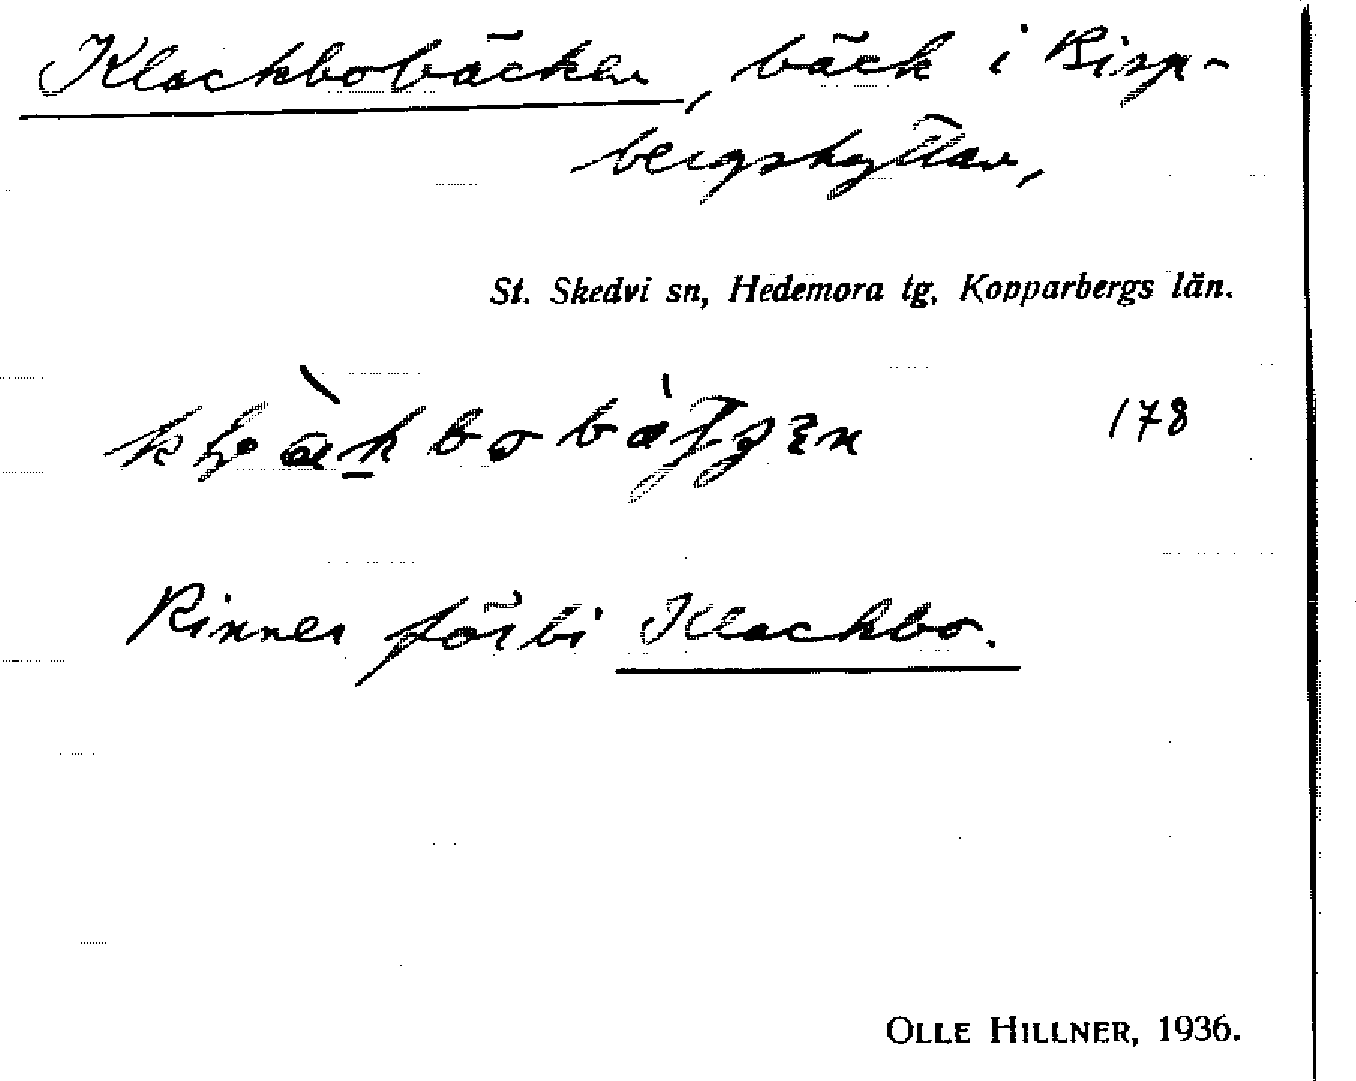 Klackbobäcken, bäck i Bisp-
bergshyttan,
St. Skedvi sn, Hedemora tg, Kopparbergs län.
178
Rinner förbi Klackbo.
OLLE HILLNER, 1936.